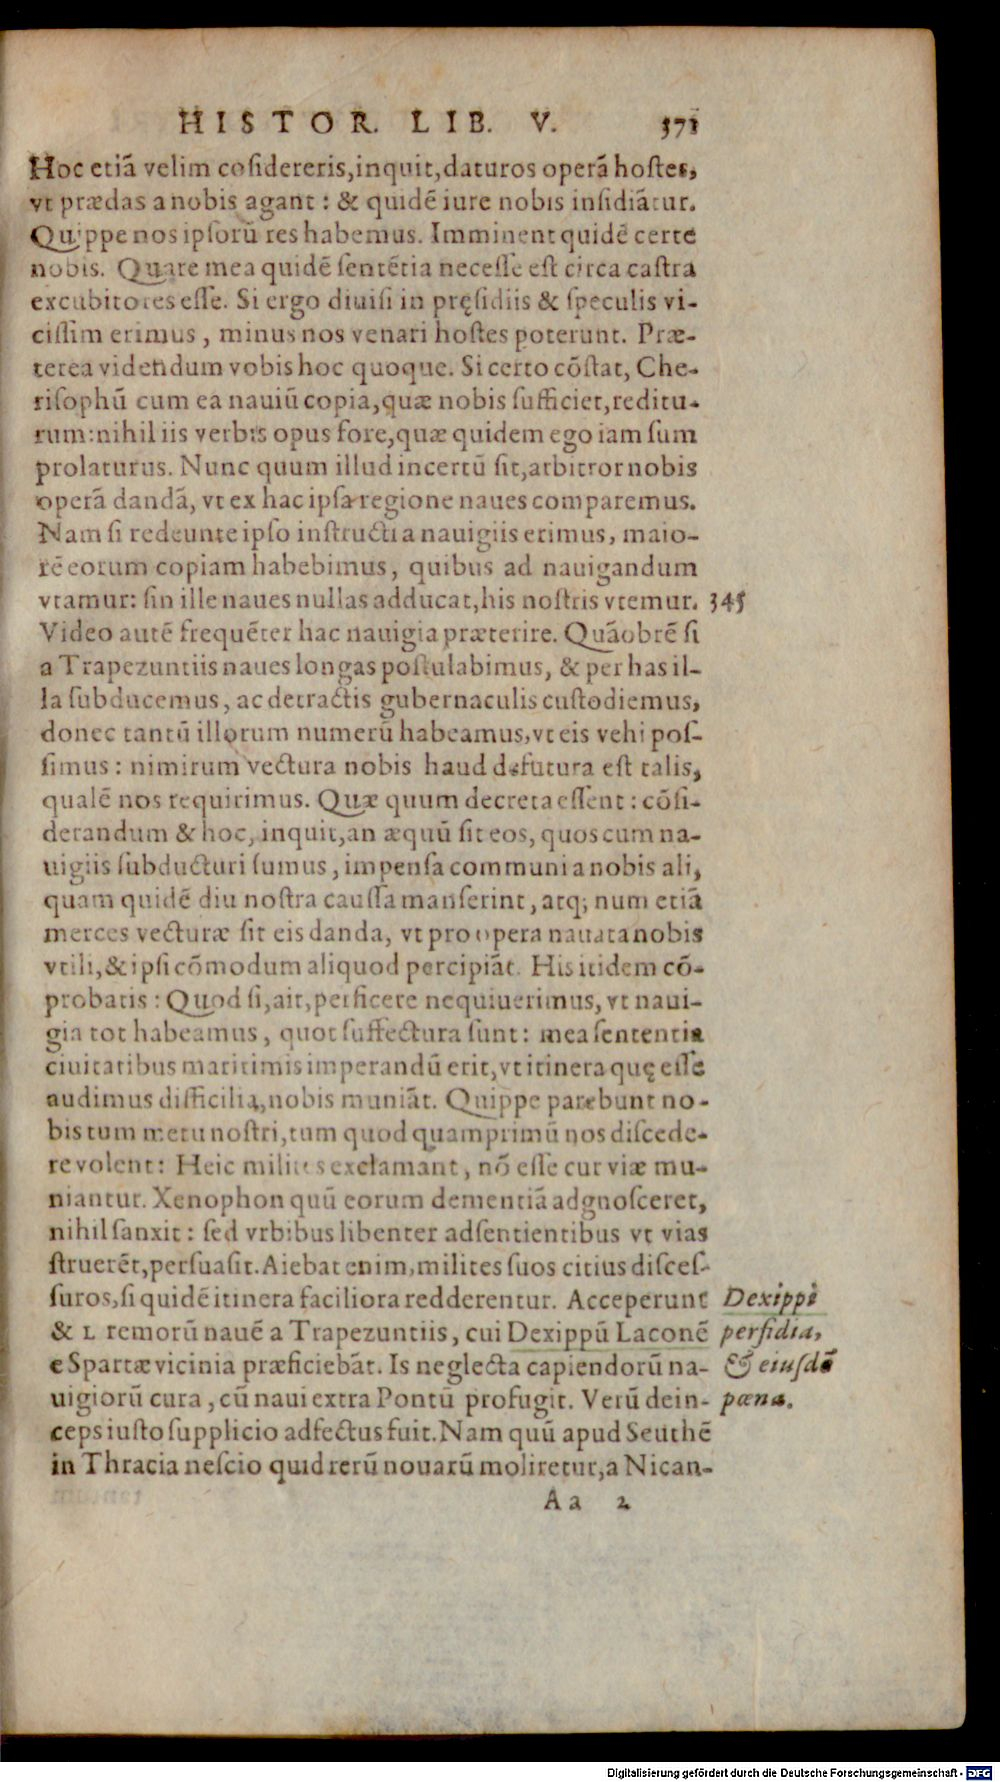 HISTOR. LIB. V. 371
Hoc etiā velim cōsidereris, inquit, daturos operā hostes,
vt prædas a nobis agant: & quidē iure nobis insidiātur.
Quippe nos ipsorū res habemus. Imminent quidē certe
nobis. Quare mea quidē sentētia necesse est circa castra
excubitores esse. Si ergo diuisi in pręsidiis & speculis vi-
cissim erimus, minus nos venari hostes poterunt. Præ-
terea videndum vobis hoc quoque. Si certo cōstat, Che-
risophū cum ea nauiū copia, quæ nobis sufficiet, reditu-
rum: nihil iis verbis opus fore, quæ quidem ego iam sum
prolaturus. Nunc quum illud incertū sit, arbitror nobis
operā dandā, vt ex hac ipsa regione naues comparemus.
Nam si redeunte ipso instructi a nauigiis erimus, maio-
rē eorum copiam habebimus, quibus ad nauigandum
vtamur: sin ille naues nullas adducat, his nostris vtemur. 345
Video autē frequēter hac nauigia præterire. Quāobrē si
a Trapezuntiis naues longas postulabimus, & per has il-
la subducemus, ac detractis gubernaculis custodiemus,
donec tantū illorum numerū habeamus, vt eis vehi pos-
simus: nimirum vectura nobis haud defutura est talis,
qualē nos requirimus. Quæ quum decreta essent: cōsi-
derandum & hoc, inquit, an æquū sit eos, quos cum na-
uigiis subducturi sumus, impensa communi a nobis ali,
quam quidē diu nostra caussa manserint, atq; num etiā
merces vecturæ sit eis danda, vt pro opera nauata nobis
vtili, & ipsi cōmodum aliquod percipiāt. His itidem cō-
probatis: Quod si, ait, perficere nequiuerimus, vt naui-
gia tot habeamus, quot suffectura sunt: mea sententia
ciuitatibus maritimis imperandū erit, vt itinera quę esse
audimus difficilia, nobis muniāt. Quippe parebunt no-
bis tum metu nostri, tum quod quamprimū nos discede-
re volent: Heic milites exclamant, nō esse cur viæ mu-
niantur. Xenophon quū eorum dementiā adgnosceret,
nihil sanxit: sed vrbibus libenter adsentientibus vt vias
struerēt, persuasit. Aiebat enim, milites suos citius disces-
suros, si quidē itinera faciliora redderentur. Acceperunt
& L remorū nauē a Trapezuntiis, cui Dexippū Laconē
e Spartæ vicinia præficiebāt. Is neglecta capiendorū na-
uigiorū cura, cū naui extra Pontū profugit. Verū dein-
ceps iusto supplicio adfectus fuit. Nam quū apud Seuthē
in Thracia nescio quid rerū nouarū moliretur, a Nican-
Dexippi
perfidia,
& eiusdē
pœna.
Aa 2
Digitalisierung gefördert durch die Deutsche Forschungsgemeinschaft - DFG